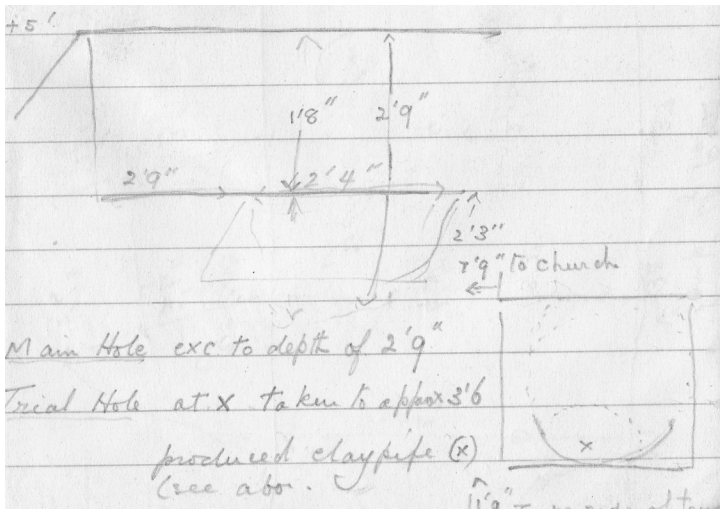 +5'
1'8" 2'9"
2'9" 2'4"
2'3"
7'9" to church
Main Hole exc to depth of 2'9"
Trial Hole at x taken to approx 3'6
produced claypipe (x)
(see abo.
x
11'9"